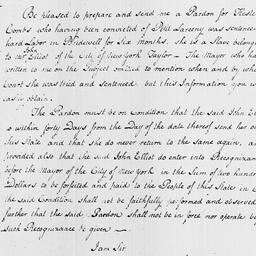 Be pleased to prepare and send me a Pardon for Hester
Combs who having been convicted of Petit Larceny was sentenced
hard Labor in Bridewell for Six Months. She is a Slave belonge
to John Elliot of the City of New York Taylor — The Mayor who ha
written to me on the Subject omitted to mention when and by wh
Court she was tried and sentenced but this Information you w
easily obtain.
The Pardon must be on Condition that the said John El
so within forty Days from the Day of the date thereof send her ou
this State and that she do never return to the Same again, an
provided also that the said John Elliot do enter into Recognizan
before the Mayor of the City of New York in the Sum of two hund
Dollars to be forfeited and paid to the People of this State in C
the said Condition shall not be faithfully performed and observed
further that the said Pardon shall not be in force nor operate be
such Recognizance be given —
I am Sir